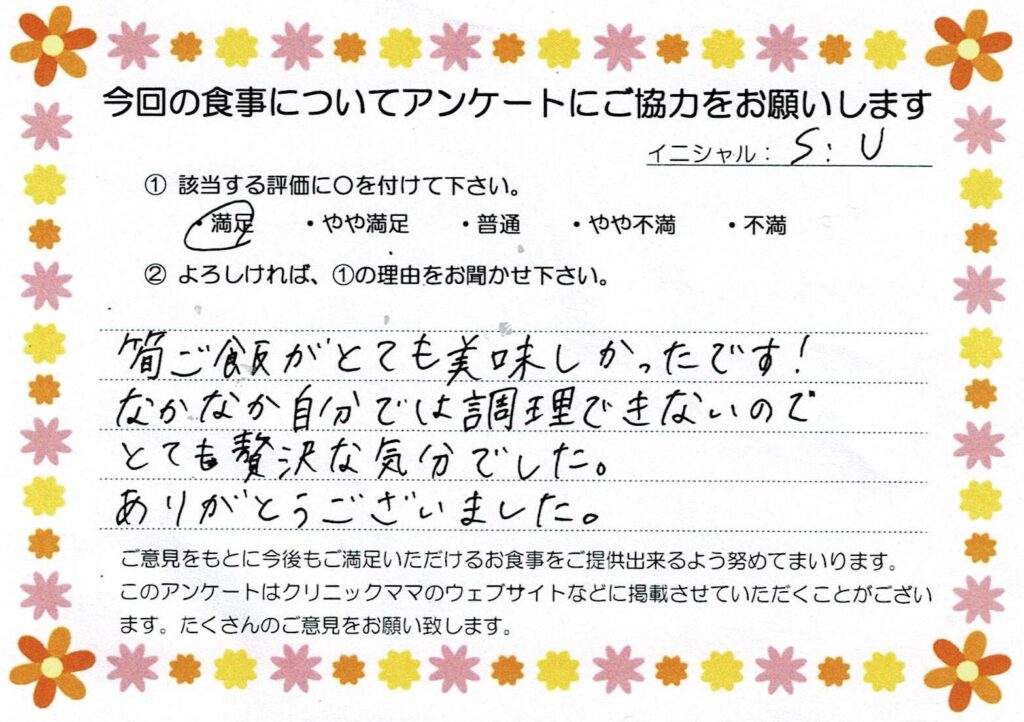 今回の食事についてアンケートにご協力をお願いします
イニシャル： S: U
① 該当する評価に〇を付けて下さい。
・満足 ・やや満足 ・普通 ・やや不満 ・不満
② よろしければ、①の理由をお聞かせ下さい。
筍ご飯がとても美味しかったです！
なかなか自分では調理できないので
とても贅沢な気分でした。
ありがとうございました。
ご意見をもとに今後もご満足いただけるお食事をご提供出来るよう努めてまいります。
このアンケートはクリニックママのウェブサイトなどに掲載させていただくことがござい
ます。たくさんのご意見をお願い致します。